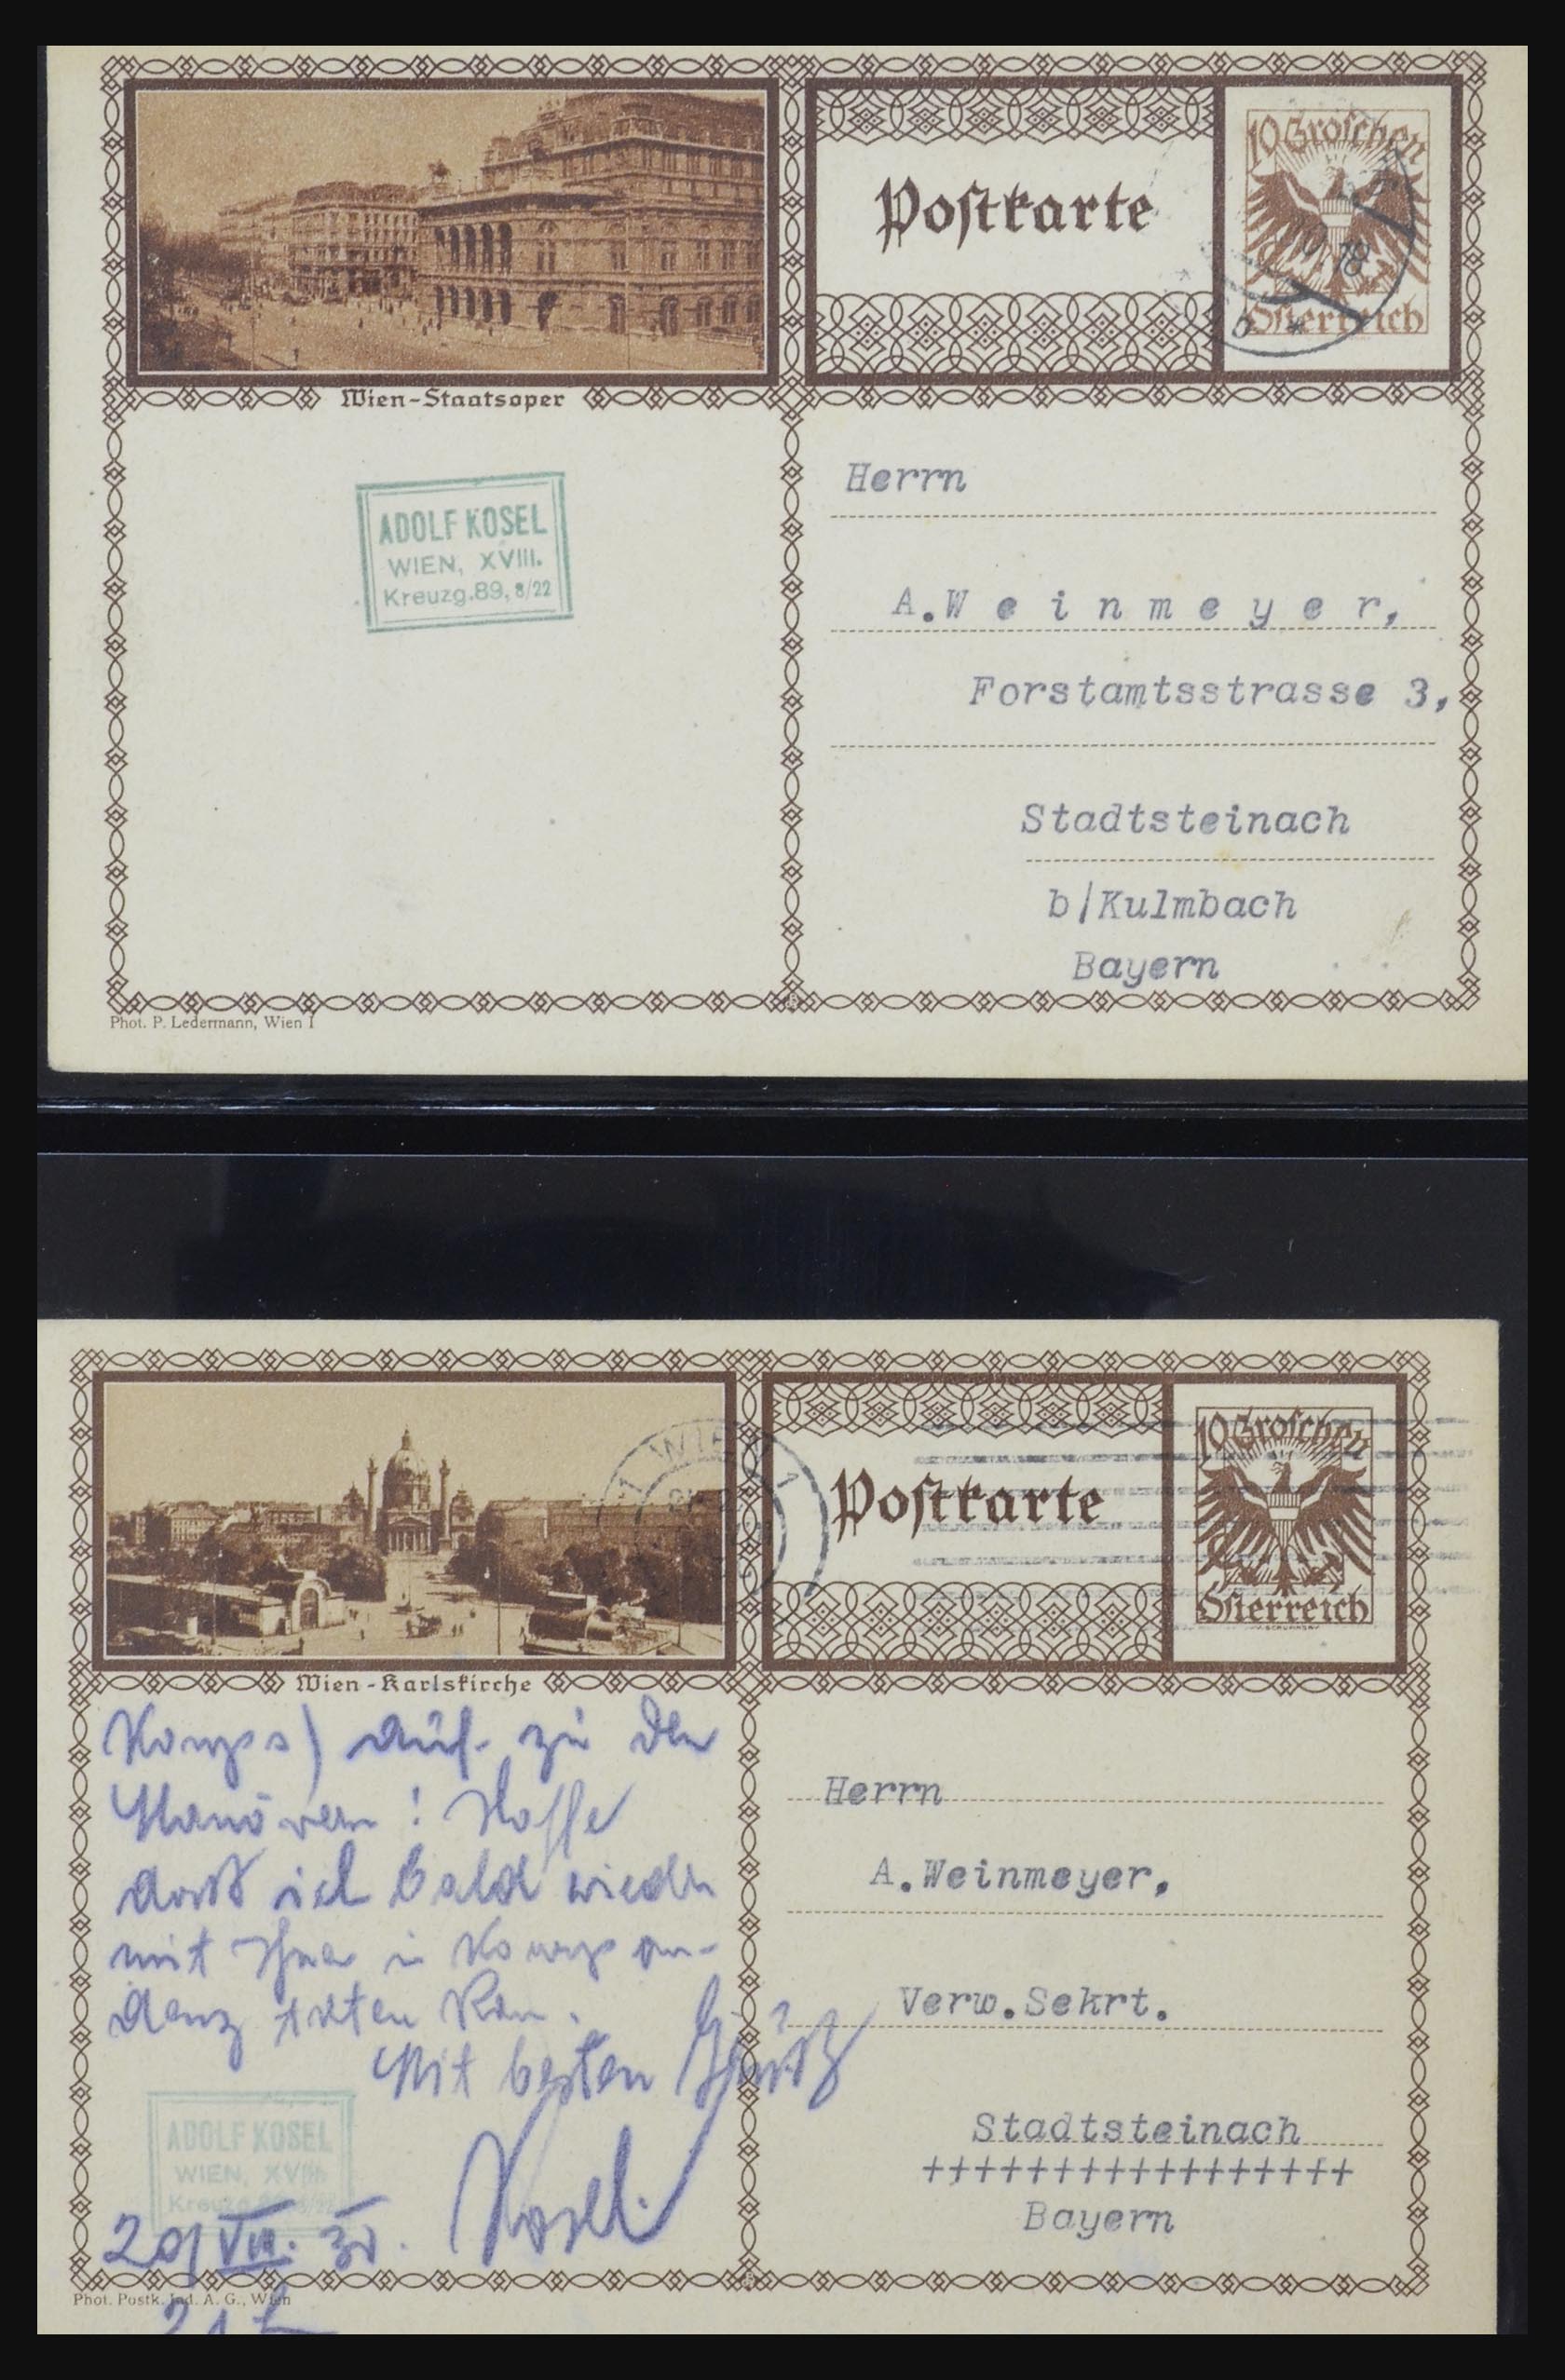 10 Groschen
Österreich
Postkarte
18
Wien-Staatsoper
ADOLF KOSEL
WIEN, XVIII.
Kreuzg.89, 8/22
Herrn
A.W e i n m e y e r,
Forstamtsstrasse 3,
Stadtsteinach
b/Kulmbach
Bayern
Phot. P. Ledermann, Wien I
10 Groschen
Österreich
Postkarte
1 WIEN 1
Wien-Karlskirche
Korps) auf zu den
Manövern! Hoffe
daß ich bald wieder
mit Ihnen in Korrespon-
denz treten kann.
Mit besten Grüß
Kosel
ADOLF KOSEL
WIEN, XVIII.
Kreuzg.89, 8/22
20/VIII. 30.
Herrn
A.Weinmeyer,
Verw.Sekrt.
Stadtsteinach
+++++++++++++++++
Bayern
Phot. Postk. Ind. A. G., Wien